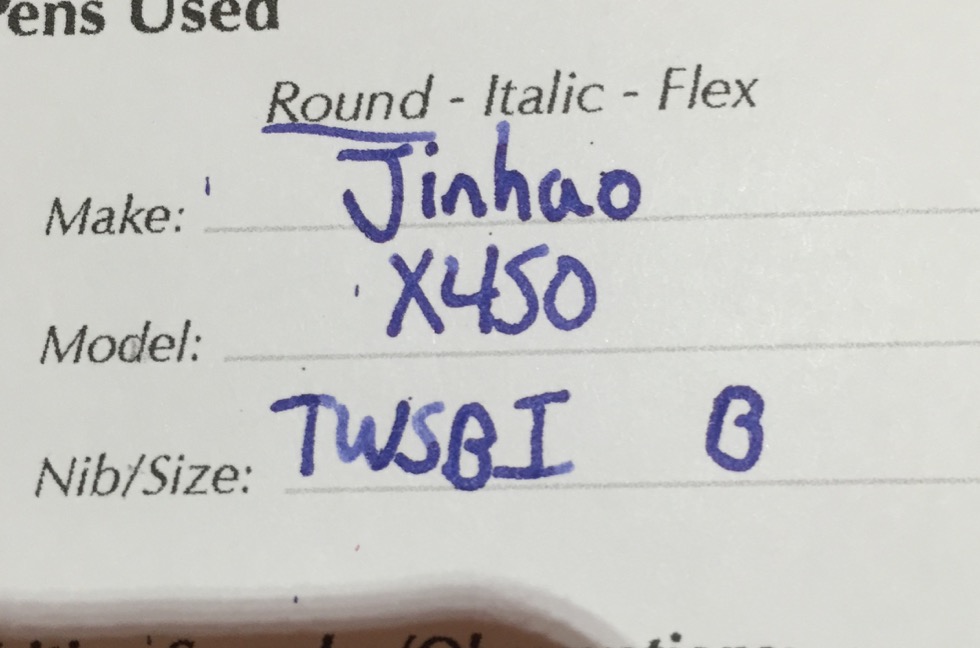 Pens Used
Round - Italic - Flex
Make: Jinhao
Model: X450
Nib/Size: TWSBI B